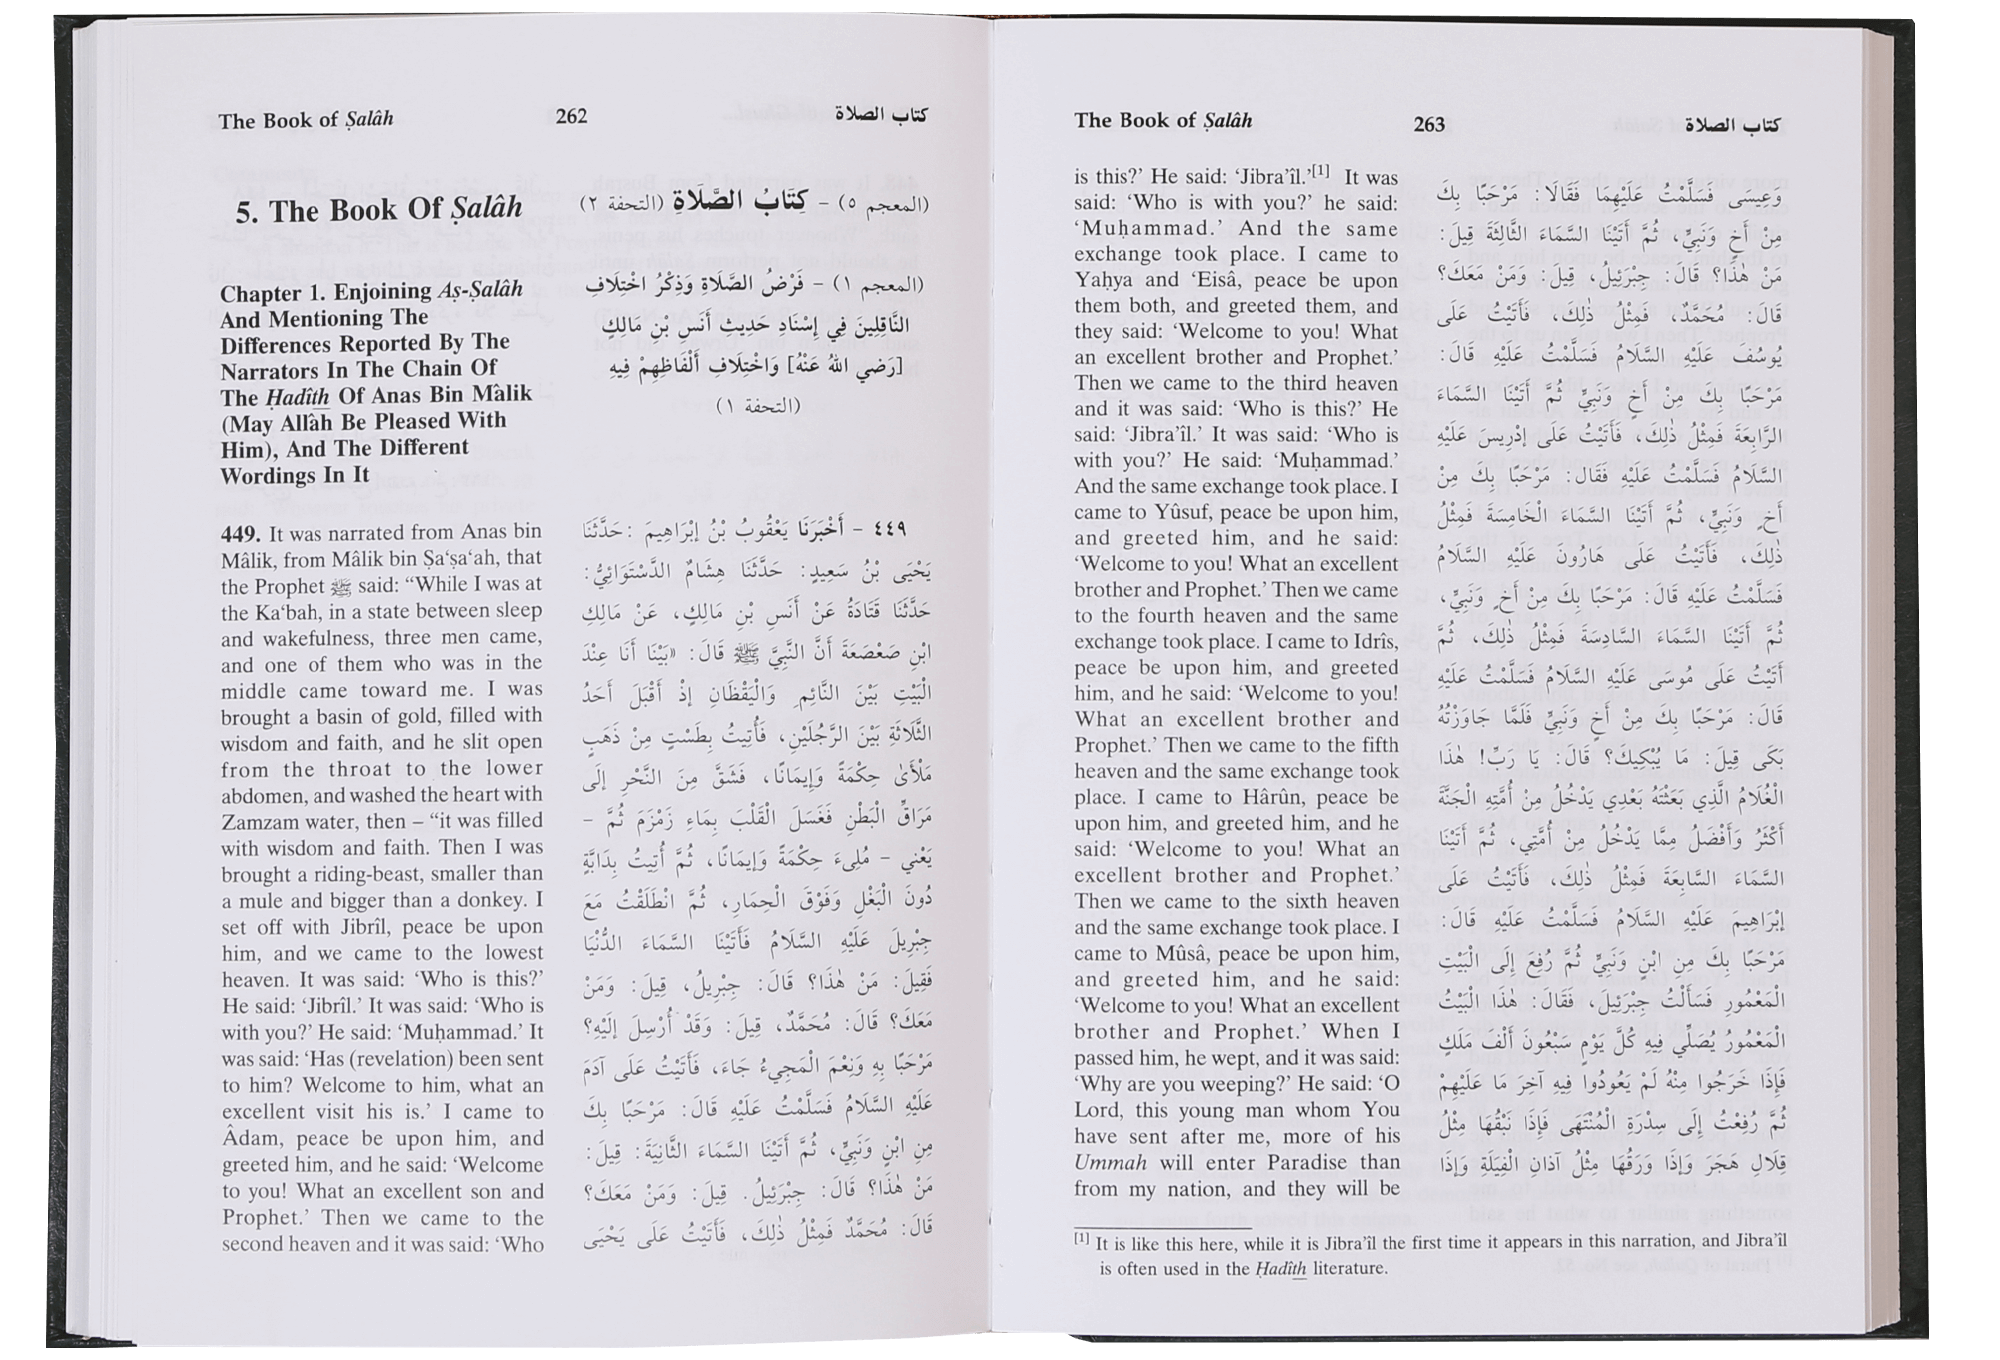 The Book of Ṣalâh
262
كتاب الصلاة
5. The Book Of Ṣalâh
(المعجم ٥) - كِتَابُ الصَّلَاةِ (التحفة ٢)
Chapter 1. Enjoining Aṣ-Ṣalâh
And Mentioning The
Differences Reported By The
Narrators In The Chain Of
The Ḥadîth Of Anas Bin Mâlik
(May Allâh Be Pleased With
Him), And The Different
Wordings In It
(المعجم ١) - فَرْضُ الصَّلَاةِ وَذِكْرُ اخْتِلَافِ
النَّاقِلِينَ فِي إِسْنَادِ حَدِيثِ أَنَسِ بْنِ مَالِكٍ
[رَضي اللهُ عَنْهُ] وَاخْتِلَافِ أَلْفَاظِهِمْ فِيهِ
(التحفة ١)
449. It was narrated from Anas bin
Mâlik, from Mâlik bin Ṣa‘ṣa‘ah, that
the Prophet ﷺ said: “While I was at
the Ka‘bah, in a state between sleep
and wakefulness, three men came,
and one of them who was in the
middle came toward me. I was
brought a basin of gold, filled with
wisdom and faith, and he slit open
from the throat to the lower
abdomen, and washed the heart with
Zamzam water, then – “it was filled
with wisdom and faith. Then I was
brought a riding-beast, smaller than
a mule and bigger than a donkey. I
set off with Jibrîl, peace be upon
him, and we came to the lowest
heaven. It was said: ‘Who is this?’
He said: ‘Jibrîl.’ It was said: ‘Who is
with you?’ He said: ‘Muḥammad.’ It
was said: ‘Has (revelation) been sent
to him? Welcome to him, what an
excellent visit his is.’ I came to
Âdam, peace be upon him, and
greeted him, and he said: ‘Welcome
to you! What an excellent son and
Prophet.’ Then we came to the
second heaven and it was said: ‘Who
٤٤٩ - أَخْبَرَنَا يَعْقُوبُ بْنُ إِبْرَاهِيمَ: حَدَّثَنَا
يَحْيَى بْنُ سَعِيدٍ: حَدَّثَنَا هِشَامٌ الدَّسْتَوَائِيُّ:
حَدَّثَنَا قَتَادَةُ عَنْ أَنَسِ بْنِ مَالِكٍ، عَنْ مَالِكِ
ابْنِ صَعْصَعَةَ أَنَّ النَّبِيَّ ﷺ قَالَ: «بَيْنَا أَنَا عِنْدَ
الْبَيْتِ بَيْنَ النَّائِمِ وَالْيَقْظَانِ إِذْ أَقْبَلَ أَحَدُ
الثَّلَاثَةِ بَيْنَ الرَّجُلَيْنِ، فَأُتِيتُ بِطَسْتٍ مِنْ ذَهَبٍ
مَلْأَىٰ حِكْمَةً وَإِيمَانًا، فَشَقَّ مِنَ النَّحْرِ إِلَى
مَرَاقِّ الْبَطْنِ فَغَسَلَ الْقَلْبَ بِمَاءِ زَمْزَمَ ثُمَّ -
يَعْنِي - مُلِىءَ حِكْمَةً وَإِيمَانًا، ثُمَّ أُتِيتُ بِدَابَّةٍ
دُونَ الْبَغْلِ وَفَوْقَ الْحِمَارِ، ثُمَّ انْطَلَقْتُ مَعَ
جِبْرِيلَ عَلَيْهِ السَّلَامُ فَأَتَيْنَا السَّمَاءَ الدُّنْيَا
فَقِيلَ: مَنْ هٰذَا؟ قَالَ: جِبْرِيلُ، قِيلَ: وَمَنْ
مَعَكَ؟ قَالَ: مُحَمَّدٌ، قِيلَ: وَقَدْ أُرْسِلَ إِلَيْهِ؟
مَرْحَبًا بِهِ وَنِعْمَ الْمَجِيءُ جَاءَ، فَأَتَيْتُ عَلَى آدَمَ
عَلَيْهِ السَّلَامُ فَسَلَّمْتُ عَلَيْهِ قَالَ: مَرْحَبًا بِكَ
مِنِ ابْنٍ وَنَبِيٍّ، ثُمَّ أَتَيْنَا السَّمَاءَ الثَّانِيَةَ: قِيلَ:
مَنْ هٰذَا؟ قَالَ: جِبْرَئِيلُ. قِيلَ: وَمَنْ مَعَكَ؟
قَالَ: مُحَمَّدٌ فَمِثْلُ ذٰلِكَ، فَأَتَيْتُ عَلَى يَحْيَى
The Book of Ṣalâh
263
كتاب الصلاة
is this?’ He said: ‘Jibra’îl.’[1] It was
said: ‘Who is with you?’ he said:
‘Muḥammad.’ And the same
exchange took place. I came to
Yaḥya and ‘Eisâ, peace be upon
them both, and greeted them, and
they said: ‘Welcome to you! What
an excellent brother and Prophet.’
Then we came to the third heaven
and it was said: ‘Who is this?’ He
said: ‘Jibra’îl.’ It was said: ‘Who is
with you?’ He said: ‘Muḥammad.’
And the same exchange took place. I
came to Yûsuf, peace be upon him,
and greeted him, and he said:
‘Welcome to you! What an excellent
brother and Prophet.’ Then we came
to the fourth heaven and the same
exchange took place. I came to Idrîs,
peace be upon him, and greeted
him, and he said: ‘Welcome to you!
What an excellent brother and
Prophet.’ Then we came to the fifth
heaven and the same exchange took
place. I came to Hârûn, peace be
upon him, and greeted him, and he
said: ‘Welcome to you! What an
excellent brother and Prophet.’
Then we came to the sixth heaven
and the same exchange took place. I
came to Mûsâ, peace be upon him,
and greeted him, and he said:
‘Welcome to you! What an excellent
brother and Prophet.’ When I
passed him, he wept, and it was said:
‘Why are you weeping?’ He said: ‘O
Lord, this young man whom You
have sent after me, more of his
Ummah will enter Paradise than
from my nation, and they will be
وَعِيسَى فَسَلَّمْتُ عَلَيْهِمَا فَقَالَا: مَرْحَبًا بِكَ
مِنْ أَخٍ وَنَبِيٍّ، ثُمَّ أَتَيْنَا السَّمَاءَ الثَّالِثَةَ قِيلَ:
مَنْ هٰذَا؟ قَالَ: جِبْرَئِيلُ، قِيلَ: وَمَنْ مَعَكَ؟
قَالَ: مُحَمَّدٌ، فَمِثْلُ ذٰلِكَ، فَأَتَيْتُ عَلَى
يُوسُفَ عَلَيْهِ السَّلَامُ فَسَلَّمْتُ عَلَيْهِ قَالَ:
مَرْحَبًا بِكَ مِنْ أَخٍ وَنَبِيٍّ ثُمَّ أَتَيْنَا السَّمَاءَ
الرَّابِعَةَ فَمِثْلُ ذٰلِكَ، فَأَتَيْتُ عَلَى إِدْرِيسَ عَلَيْهِ
السَّلَامُ فَسَلَّمْتُ عَلَيْهِ فَقَال: مَرْحَبًا بِكَ مِنْ
أَخٍ وَنَبِيٍّ، ثُمَّ أَتَيْنَا السَّمَاءَ الْخَامِسَةَ فَمِثْلُ
ذٰلِكَ، فَأَتَيْتُ عَلَى هَارُونَ عَلَيْهِ السَّلَامُ
فَسَلَّمْتُ عَلَيْهِ قَالَ: مَرْحَبًا بِكَ مِنْ أَخٍ وَنَبِيٍّ،
ثُمَّ أَتَيْنَا السَّمَاءَ السَّادِسَةَ فَمِثْلُ ذٰلِكَ، ثُمَّ
أَتَيْتُ عَلَى مُوسَى عَلَيْهِ السَّلَامُ فَسَلَّمْتُ عَلَيْهِ
قَالَ: مَرْحَبًا بِكَ مِنْ أَخٍ وَنَبِيٍّ فَلَمَّا جَاوَزْتُهُ
بَكَى قِيلَ: مَا يُبْكِيكَ؟ قَالَ: يَا رَبِّ! هٰذَا
الْغُلَامُ الَّذِي بَعَثْتَهُ بَعْدِي يَدْخُلُ مِنْ أُمَّتِهِ الْجَنَّةَ
أَكْثَرُ وَأَفْضَلُ مِمَّا يَدْخُلُ مِنْ أُمَّتِي، ثُمَّ أَتَيْنَا
السَّمَاءَ السَّابِعَةَ فَمِثْلُ ذٰلِكَ، فَأَتَيْتُ عَلَى
إِبْرَاهِيمَ عَلَيْهِ السَّلَامُ فَسَلَّمْتُ عَلَيْهِ قَالَ:
مَرْحَبًا بِكَ مِنِ ابْنٍ وَنَبِيٍّ ثُمَّ رُفِعَ إِلَى الْبَيْتِ
الْمَعْمُورِ فَسَأَلْتُ جِبْرَئِيلَ، فَقَالَ: هٰذَا الْبَيْتُ
الْمَعْمُورُ يُصَلِّي فِيهِ كُلَّ يَوْمٍ سَبْعُونَ أَلْفَ مَلَكٍ
فَإِذَا خَرَجُوا مِنْهُ لَمْ يَعُودُوا فِيهِ آخِرَ مَا عَلَيْهِمْ
ثُمَّ رُفِعْتُ إِلَى سِدْرَةِ الْمُنْتَهَى فَإِذَا نَبْقُهَا مِثْلُ
قِلَالِ هَجَرَ وَإِذَا وَرَقُهَا مِثْلُ آذَانِ الْفِيَلَةِ وَإِذَا
[1] It is like this here, while it is Jibra’îl the first time it appears in this narration, and Jibra’îl
is often used in the Ḥadîth literature.